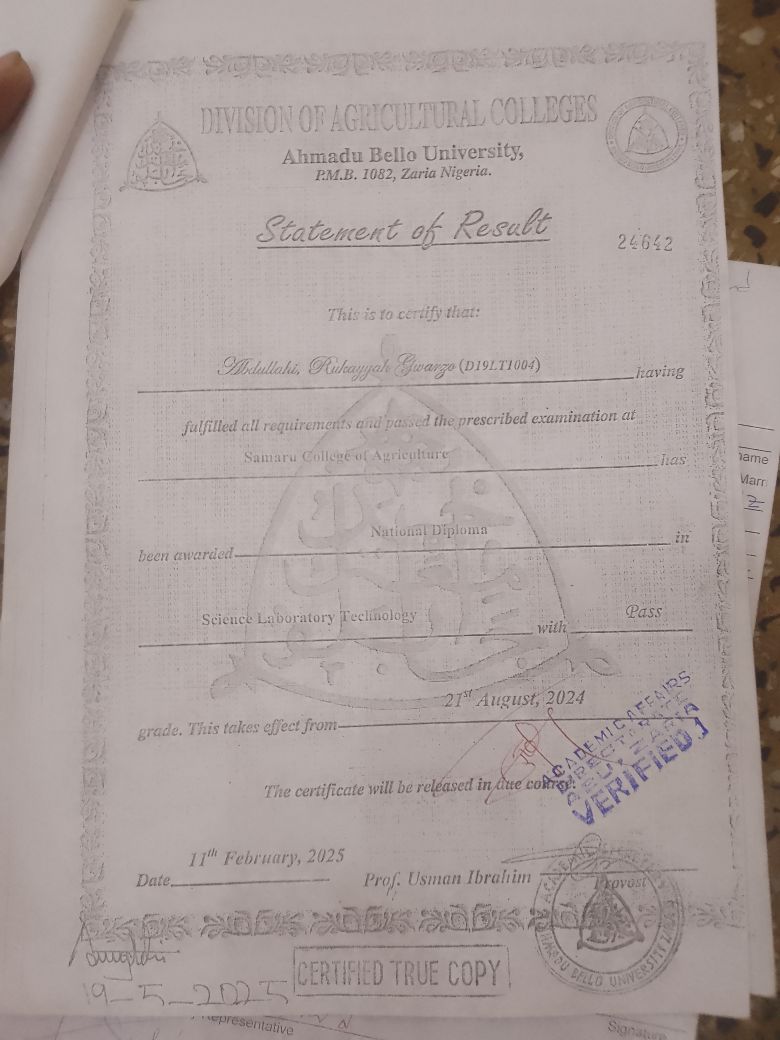 DIVISION OF AGRICULTURAL COLLEGES
Ahmadu Bello University,
P.M.B. 1082, Zaria Nigeria.
Statement of Result
24642
This is to certify that:
Abdullahi, Rukayyah Gwarzo (D19LT1004) having
fulfilled all requirements and passed the prescribed examination at
Samaru College of Agriculture has
been awarded National Diploma in
Science Laboratory Technology with Pass
grade. This takes effect from 21st August, 2024
The certificate will be released in due course.
ACADEMIC AFFAIRS
DIRECTORATE
VERIFIED
Date 11th February, 2025
Prof. Usman Ibrahim
Provost
AHMADU BELLO UNIVERSITY
CERTIFIED TRUE COPY
19-5-2025
name
Representative
Signature